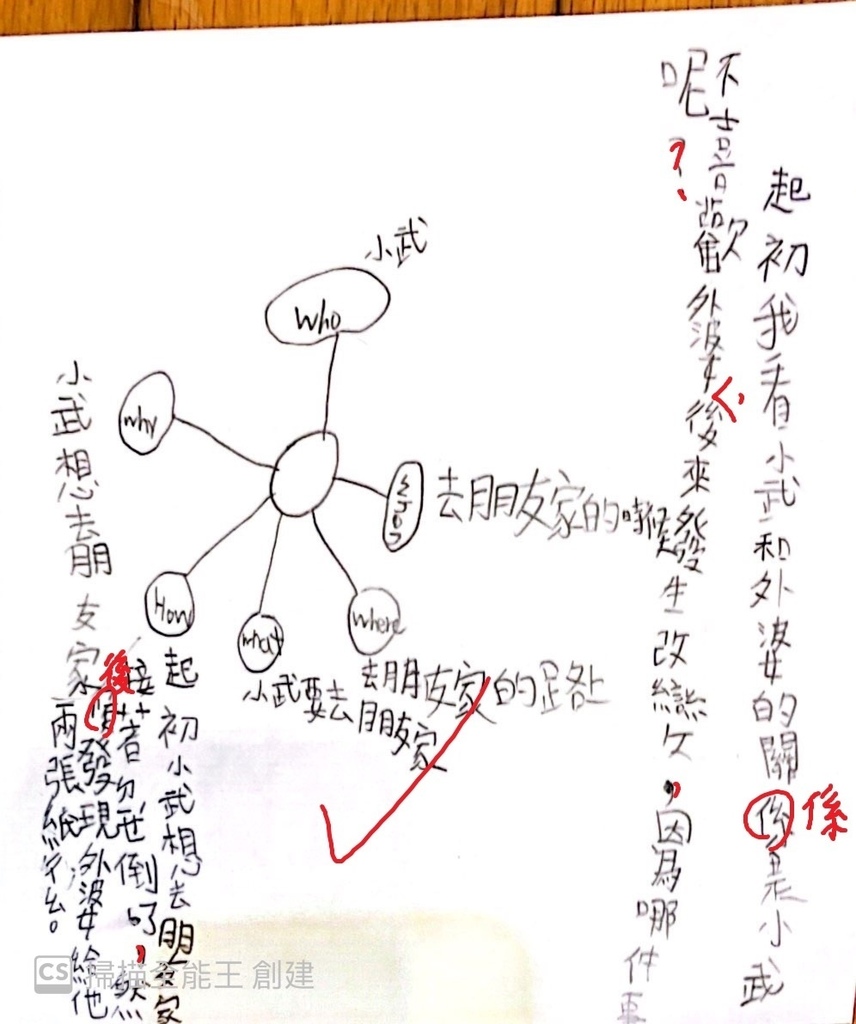 起初我看小武和外婆的關係是小武
係
不喜歡外婆後來發生改變
,因為哪件事
呢
?
小武
Who
why
去朋友家的時候
How
what
where
去朋友家的路上
小武要去朋友家
小武想去朋友家
起初小武想去朋友家
接著
倒
,然
後
發現外婆給他
兩張紙
CS 掃描全能王 創建